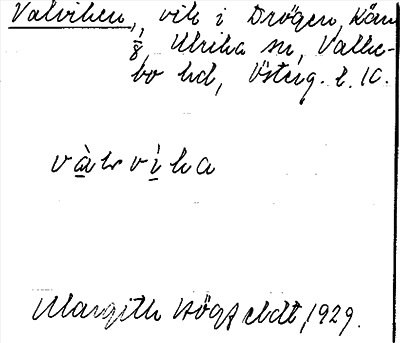 Valviken, vik i Drögen, Kärn
8, Ulrika sn, Valke-
bo hd, Österg. l. 10.
vàlvika
Margith Högfeldt, 1929.